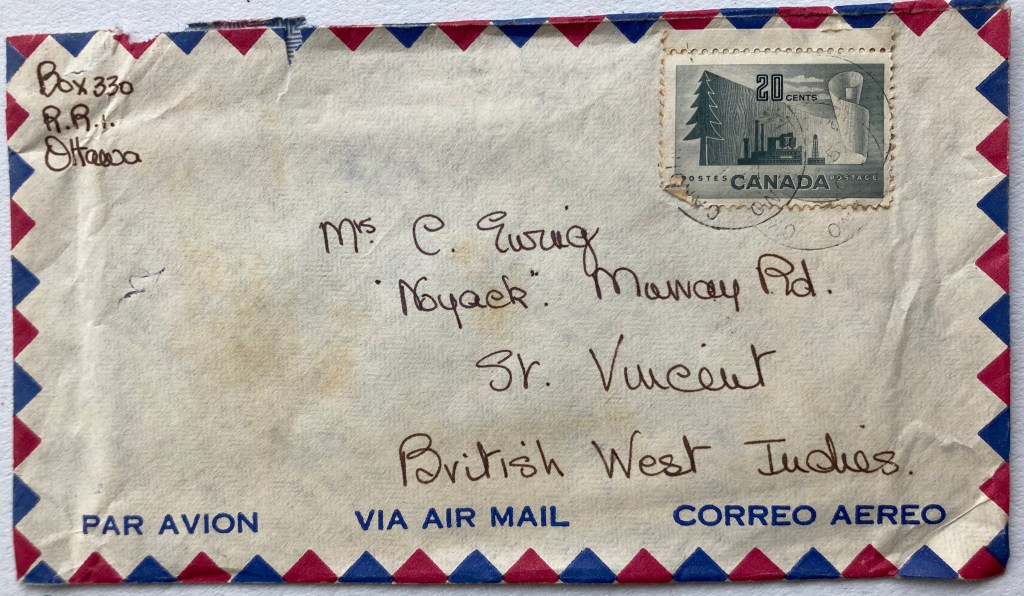 Box 330
R.R.1.
Ottawa
20 CENTS
POSTES CANADA POSTAGE
Mrs. C. Ewing
"Noyack". Murray Rd.
St. Vincent
British West Indies.
PAR AVION VIA AIR MAIL CORREO AEREO